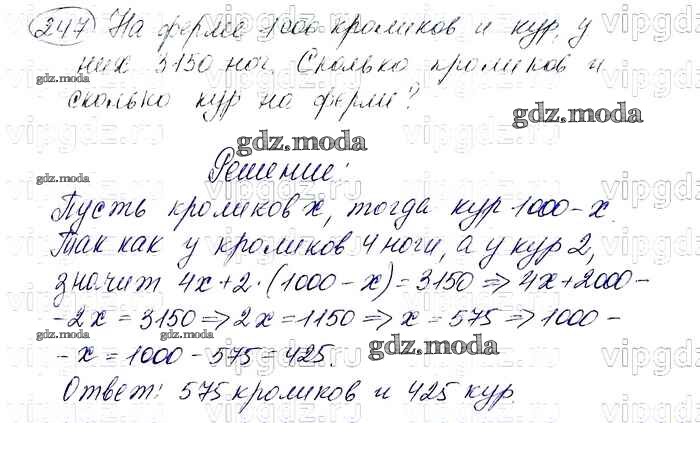 247 На ферме 1000 кроликов и кур, у
них 3150 ног. Сколько кроликов и
сколько кур на ферме?
Решение:
Пусть кроликов x, тогда кур 1000-x.
Так как у кроликов 4 ноги, а у кур 2,
значит 4x+2·(1000-x)=3150⇒4x+2000-
-2x=3150⇒2x=1150⇒x=575⇒1000-
-x=1000-575=425.
Ответ: 575 кроликов и 425 кур.
gdz.moda
gdz.moda
gdz.moda
gdz.moda
gdz.moda
gdz.moda
gdz.moda
vipgdz.ru